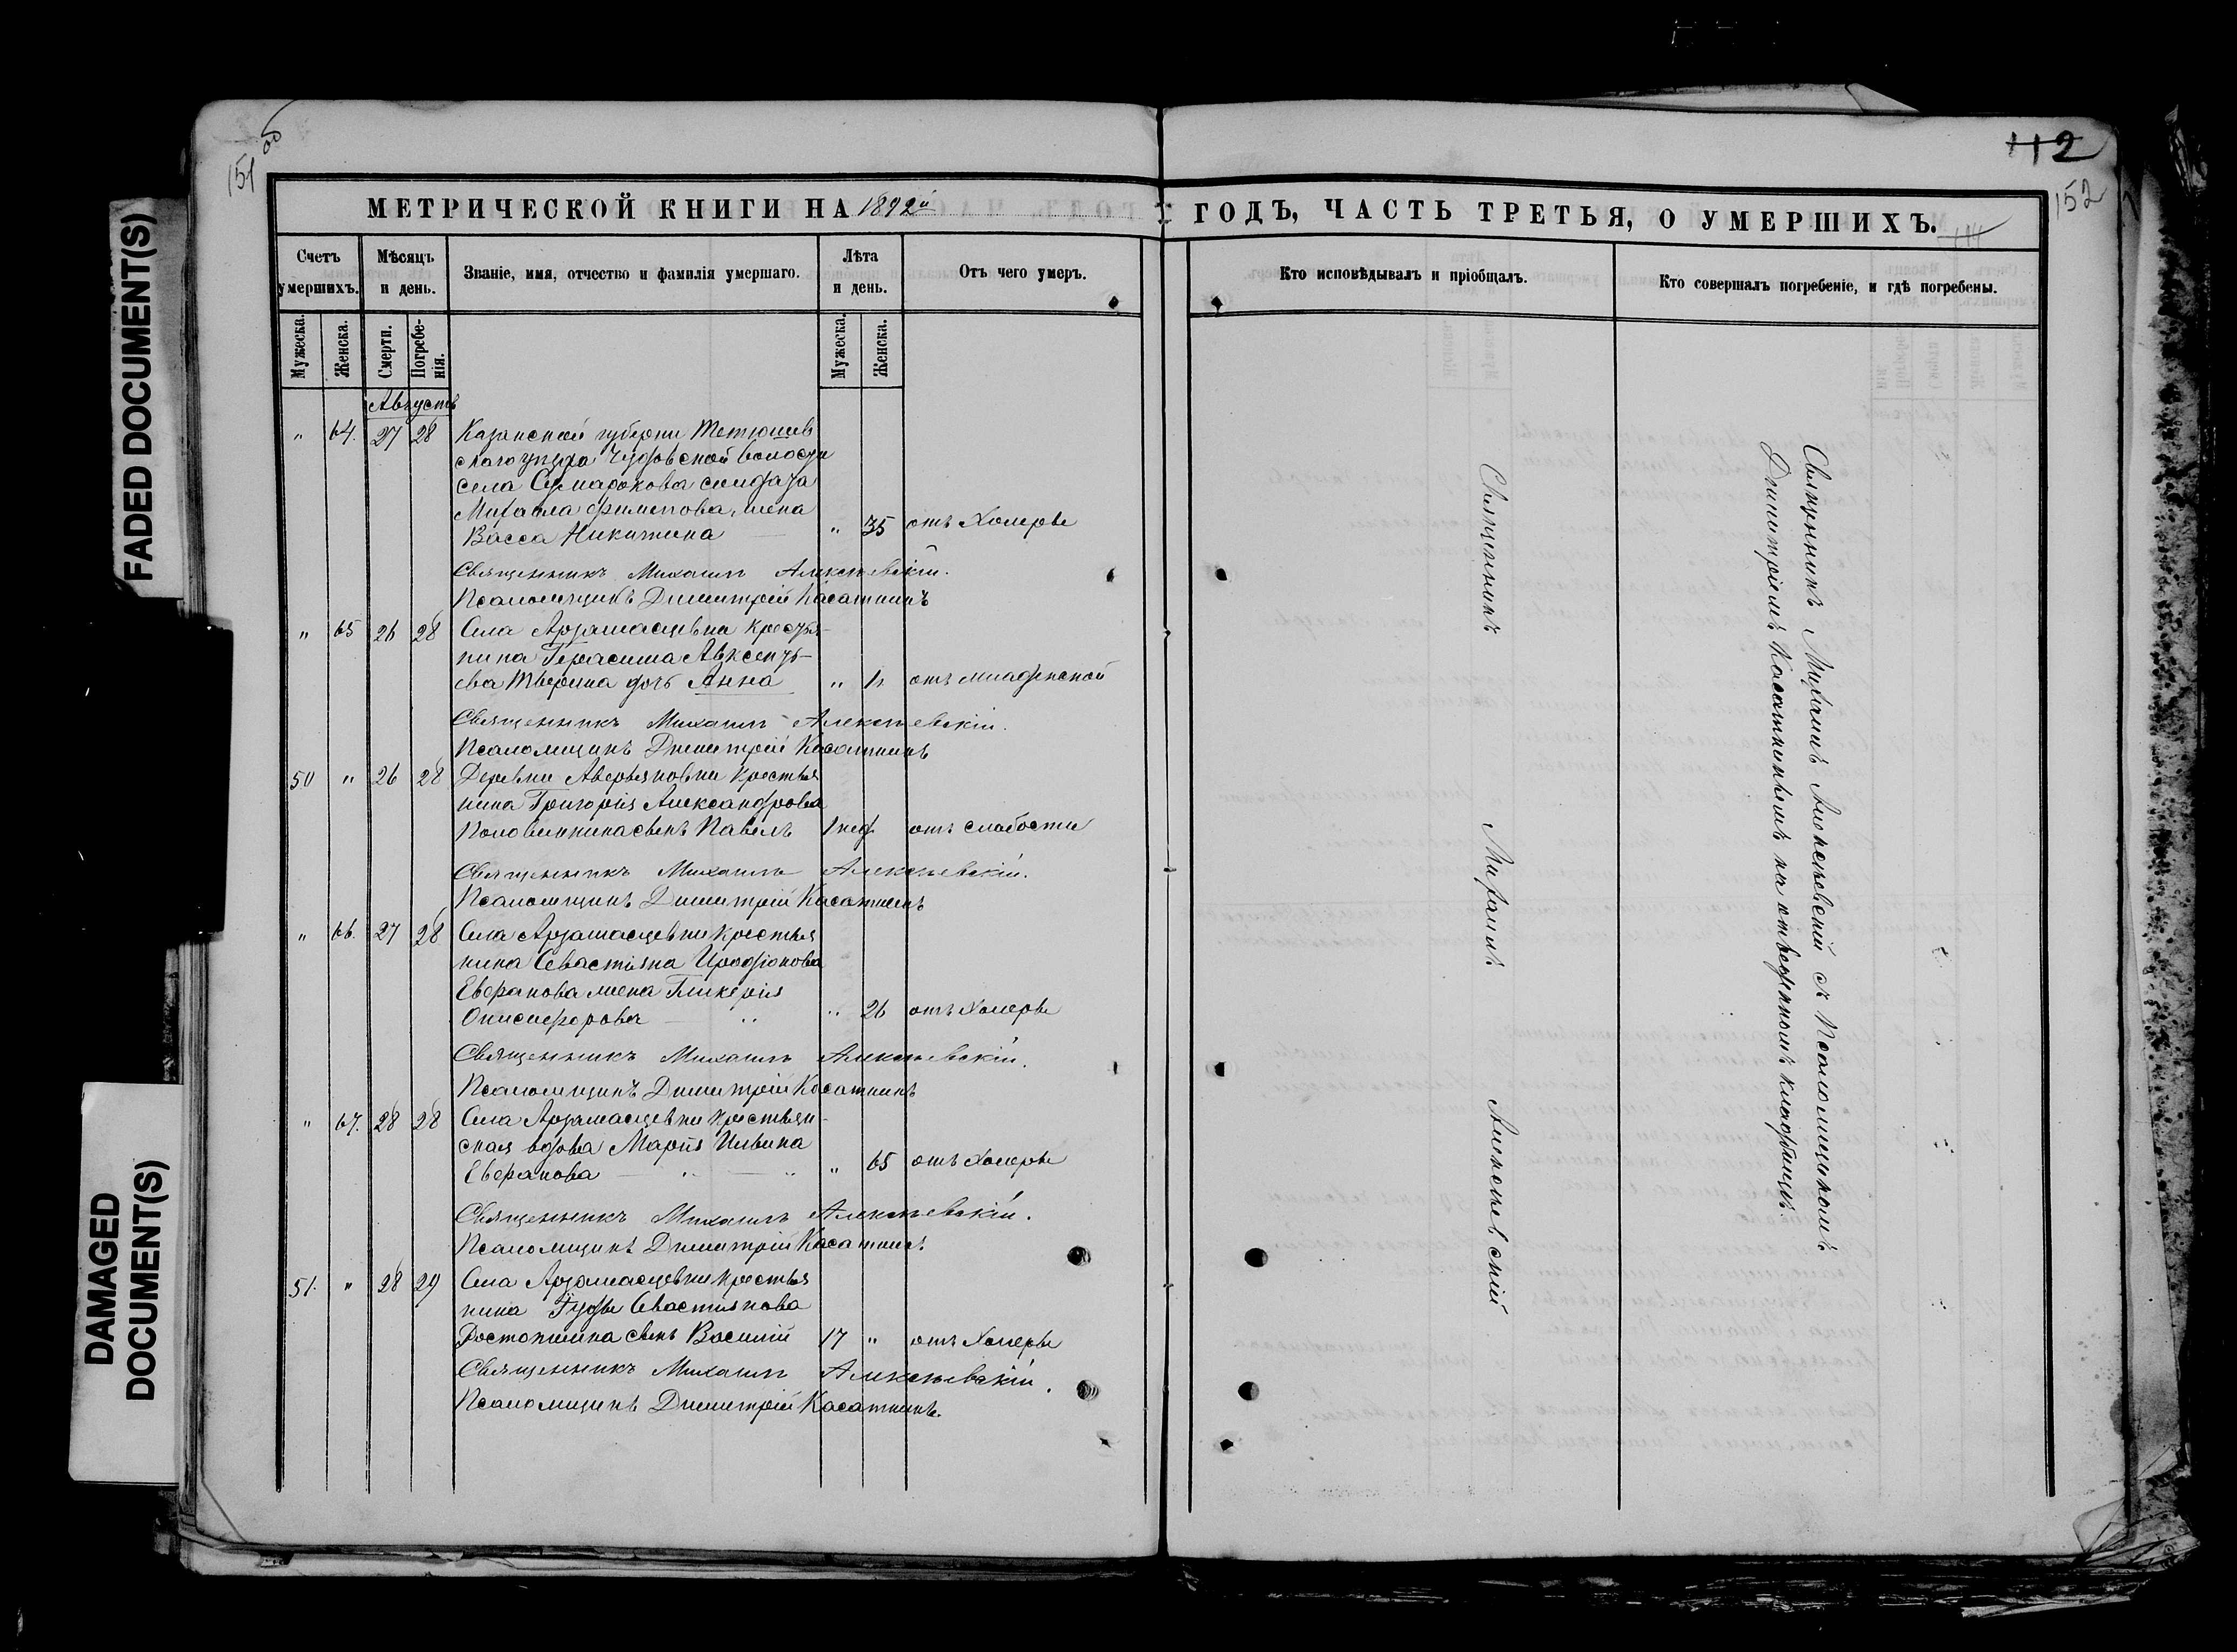 FADED DOCUMENT(S)
DAMAGED
DOCUMENT(S)
151 об
112
152
МЕТРИЧЕСКОЙ КНИГИ НА 1892й ГОДЪ, ЧАСТЬ ТРЕТЬЯ, О УМЕРШИХЪ.
Счетъ умершихъ.
Мѣсяцъ и день.
Званіе, имя, отчество и фамилія умершаго.
Лѣта и день.
Отъ чего умеръ.
Кто исповѣдывалъ и пріобщалъ.
Кто совершалъ погребеніе, и гдѣ погребены.
Мужеска. Женска. Смерти. Погребенія. Мужеска. Женска.
Августъ
" 64. 27 28 Казанской губерни Тетюшев
скаго уѣзда Чудовской волости
села Сумарокова солдата
Михаила Филипова, жена
Васса Никитина " 35 отъ холеры
Священникъ Михаилъ Алексѣевскій.
Псаломщикъ Димитрій Касаткинъ
" 65 26 28 Села Арзамасцевки крестья-
нина Герасима Авксенть-
ева Тверина дочь Анна " отъ младенской
Священникъ Михаилъ Алексѣевскій.
Псаломщикъ Димитрій Касаткинъ
50 " 26 28 Деревни Аверьяновки крестья
нина Григорія Александрова
Половинкина сынъ Павелъ 1 нед. отъ слабости
Священникъ Михаилъ Алексѣевскій.
Псаломщикъ Димитрій Касаткинъ
" 66. 27 28 Села Арзамасцевки крестья
нина Севастіяна Иродіонова
Еверанова жена Гликерія
Онисифорова " " 26 отъ холеры
Священникъ Михаилъ Алексѣевскій.
Псаломщикъ Димитрій Касаткинъ
" 67. 28 28 Села Арзамасцевки крестьян-
ская вдова Марія Ильина
Еверанова " " " 65 отъ холеры
Священникъ Михаилъ Алексѣевскій.
Псаломщикъ Димитрій Касаткинъ
51. " 28 29 Села Арзамасцевки крестья
нина Іуды Севастьянова
Ростопшина сынъ Василій 17 " отъ холеры
Священникъ Михаилъ Алексѣевскій.
Псаломщикъ Димитрій Касаткинъ.
Священникъ Михаилъ Алексѣевскій
Священникъ Михаилъ Алексѣевскій съ Псаломщикомъ
Димитріемъ Касаткинымъ на отведенномъ кладбищѣ.